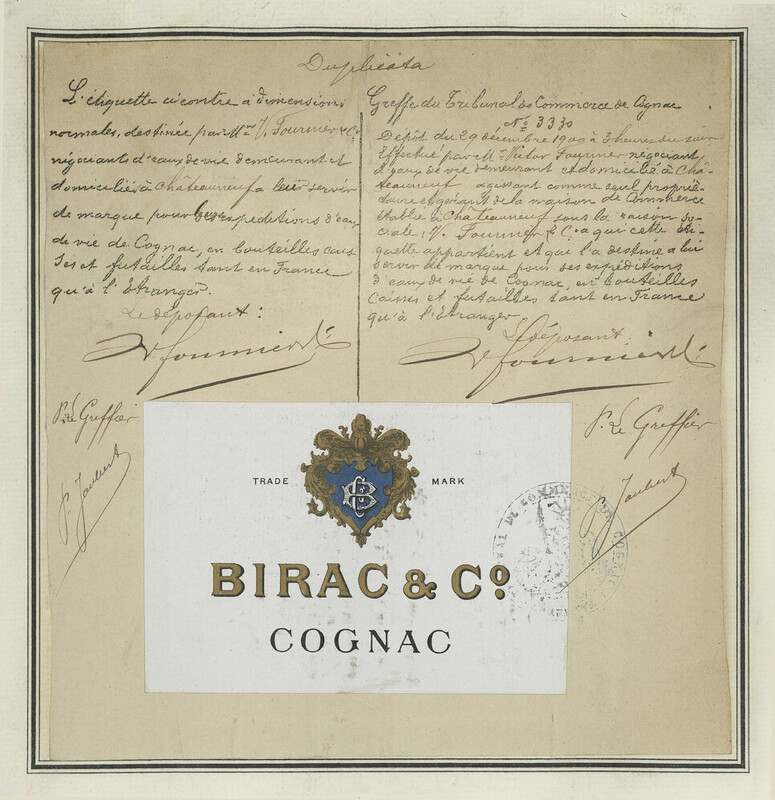 Duplicata
L'étiquette ci contre à dimensions
normales, destinée par Mrs V. Fournier & Co
négociants d'eaux de vie demeurant et
domiciliés à Châteauneuf a leur servir
de marque pour leurs expeditions d'eaux
de vie de Cognac, en bouteilles cais
ses et futailles tant en France
qu'à l'Etranger.
Le déposant :
V Fournier &
P. Le Greffier
P. Jaubert
Greffe du Tribunal de Commerce de Cognac
No 3330
Dépot du 29 décembre 1909 à 3 heures du soir
Effectué par Mr Victor Fournier négociant
d'eaux de vie demeurant et domicilié à Châ-
teauneuf agissant comme seul proprié-
taire et gérant de la maison de Commerce
établie à Châteauneuf sous la raison so-
ciale : V. Fournier & C. a qui cette éti-
quette appartient et qui l'a destine a lui
servir de marque pour ses expéditions
d'eaux de vie de Cognac, en bouteilles
Caisses et futailles tant en France
qu'à l'Etranger.
Le déposant :
V Fournier &
P. Le Greffier
Jaubert
TRADE MARK
CB
BIRAC & Co.
COGNAC
DE COMMERCE DE COGNAC